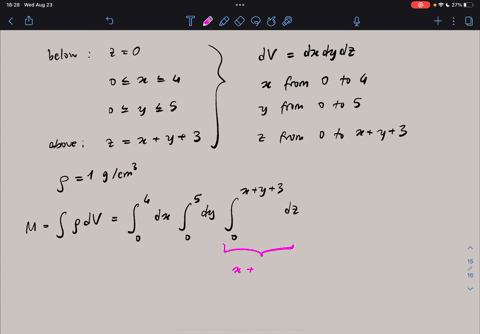 18:28 Wed Aug 23
27%
below: z = 0
0 ≤ x ≤ 4
0 ≤ y ≤ 5
above: z = x + y + 3
dV = dx dy dz
x from 0 to 4
y from 0 to 5
z from 0 to x+y+3
ρ = 1 g/cm³
M = ∫ρdV = ∫₀⁴ dx ∫₀⁵ dy ∫₀^{x+y+3} dz
x +
15
/
16